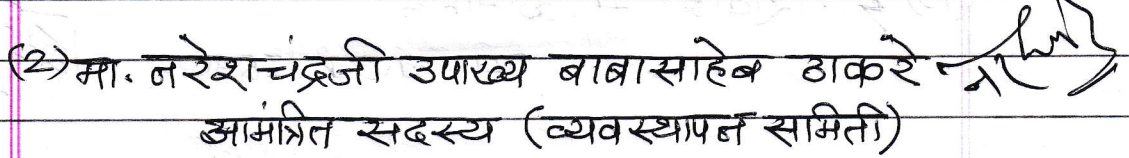 (2) मा. नरेशचंद्रजी उपाख्य बाबासाहेब ठाकरे
आमंत्रित सदस्य (व्यवस्थापन समिती)